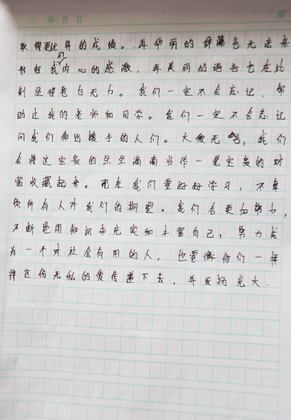 年 月 日
取得更优异的成绩。再华丽的辞藻也无法来
形容我们内心的感激，再美丽的语言也在此
刻显得苍白无力。我们一定不会忘记，帮
助过我的老师和同学。我们一定不会忘记
向我们伸出援手的人们。大爱无言，我们
会将这宝贵的点点滴滴当作一笔宝贵的财
富收藏起来。而在我们要好好学习，不辜
负所有人对我们的期望。我们会更加努力，
不断地用知识来充实和丰富自己，努力成
为一个对社会有用的人，也会像你们一样
将这份无私的爱传递下去，并发扬光大。